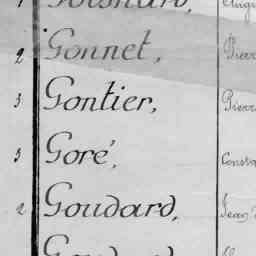 2 Gonnet, Pierr
3 Gontier, Pierr
3 Goré, Consta
2 Goudard, Jean